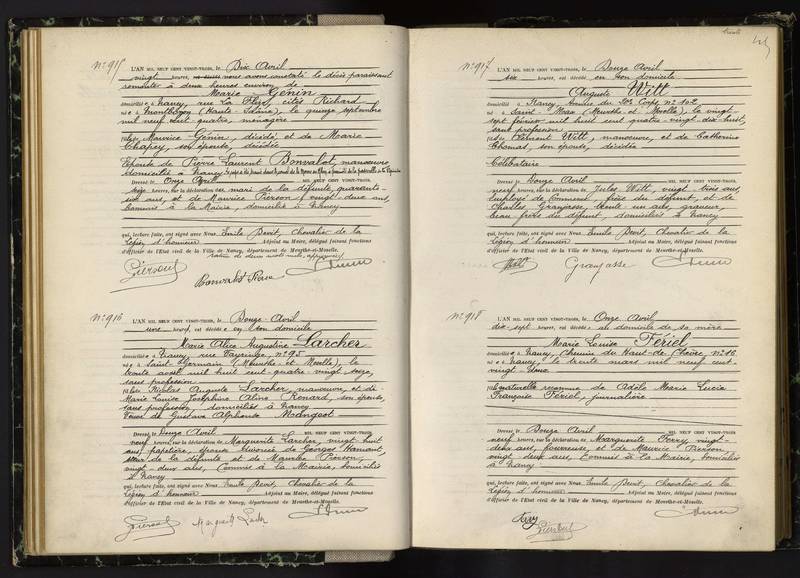 N° 915
L'AN MIL NEUF CENT VINGT-TROIS, le Dix Avril
vingt heures, nous avons constaté le décès paraissant
remonter à deux heures environ de
Marie Génin
domiciliée à Nancy, rue La Flize, cités Richard
née à Montbozon (Haute-Saône), le quinze septembre
mil neuf cent quatre, ménagère
fille Maurice Génin, décédé et de Marie
Chapey, son épouse, décédée
Épouse de Pierre Laurent Bonvalot, manœuvre
domiciliés à Nancy
Dressé le Onze Avril MIL NEUF CENT VINGT-TROIS,
heures, sur la déclaration du mari de la défunte, quarante-
six ans, et de Maurice Pierson, vingt-deux ans,
Commis à la Mairie, domiciliés à Nancy
qui, lecture faite, ont signé avec Nous Émile Bevit, Chevalier de la
Légion d'honneur Adjoint au Maire, délégué faisant fonctions
d'Officier de l'Etat civil de la Ville de Nancy, département de Meurthe-et-Moselle.
Bonvalot Pierre
N° 916
L'AN MIL NEUF CENT VINGT-TROIS, le Douze Avril
heures, est décédée en son domicile
Marie Alice Augustine Larcher
domiciliée à Nancy, rue n° 95
née à Saint-Germain (Meurthe-et-Moselle), le
trente août mil huit cent quatre-vingt seize,
sans profession
fille Nicolas Auguste Larcher, manœuvre, et de
Marie Louise Joséphine Aline Renard, son épouse,
sans profession, domiciliés à Nancy
Veuve de Gustave Alphonse Mangeot
Dressé le Douze Avril MIL NEUF CENT VINGT-TROIS,
neuf heures, sur la déclaration de Marguerite Larcher, vingt-huit
ans, papetière, épouse divorcée de Georges Hamant,
sœur de la défunte et de Maurice Pierson,
vingt-deux ans, Commis à la Mairie, domiciliés
à Nancy
qui, lecture faite, ont signé avec Nous Émile Bevit, Chevalier de la
Légion d'honneur Adjoint au Maire, délégué faisant fonctions
d'Officier de l'Etat civil de la Ville de Nancy, département de Meurthe-et-Moselle.
N° 917
L'AN MIL NEUF CENT VINGT-TROIS, le Douze Avril
six heures, est décédé en son domicile
Auguste Witt
domicilié à Nancy, Avenue du 20e Corps n° 102
né à Saint-Max (Meurthe-et-Moselle), le vingt-
sept février mil huit cent quatre-vingt-dix-huit,
sans profession
fils de Clément Witt, manœuvre, et de Catherine
Thomas, son épouse, décédée
Célibataire
Dressé le Douze Avril MIL NEUF CENT VINGT-TROIS,
neuf heures, sur la déclaration de Jules Witt, vingt-trois ans,
employé de commerce, frère du défunt, et de
Charles Grangasse, trente-un ans, graveur,
beau-frère du défunt, domiciliés à Nancy
qui, lecture faite, ont signé avec Nous Émile Bevit, Chevalier de la
Légion d'honneur Adjoint au Maire, délégué faisant fonctions
d'Officier de l'Etat civil de la Ville de Nancy, département de Meurthe-et-Moselle.
Grangasse
N° 918
L'AN MIL NEUF CENT VINGT-TROIS, le Onze Avril
dix-sept heures, est décédée au domicile de sa mère
Marie Louise Fériel
domiciliée à Nancy, Chemin du Haut-de-Chèvre n° 16
née à Nancy, le trente mars mil neuf cent
vingt-deux
fille naturelle reconnue de Adèle Marie Lucie
Françoise Fériel, journalière
Dressé le Douze Avril MIL NEUF CENT VINGT-TROIS,
neuf heures, sur la déclaration de Marguerite Ferry, vingt-
deux ans, et de Maurice Pierson,
vingt-deux ans, Commis à la Mairie, domiciliés
à Nancy
qui, lecture faite, ont signé avec Nous Émile Bevit, Chevalier de la
Légion d'honneur Adjoint au Maire, délégué faisant fonctions
d'Officier de l'Etat civil de la Ville de Nancy, département de Meurthe-et-Moselle.
Ferry